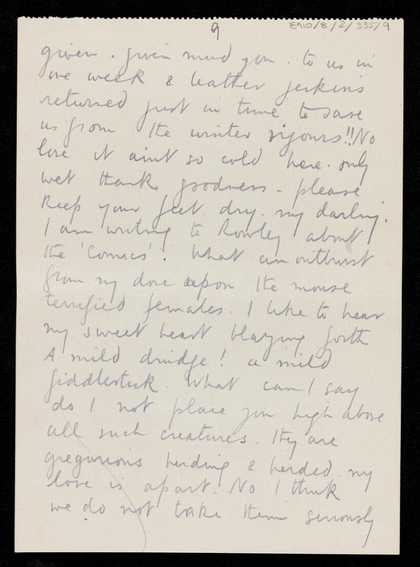 9
ERIO/8/2/335/9
given. given mind you. to us in
one week & leather jerkins
returned just in time to save
us from the winter rigours!! No
love it aint so cold here. only
wet thank goodness - please
keep your feet dry. my darling.
I am writing to Rowley about
the 'Comics'. What an outburst
from my dove upon the mouse
terrified females. I like to hear
my sweet heart blazing forth
A mild drudge! a mild
fiddlestick. What can I say
do I not place you high above
all such creatures. they are
gregarious herding & herded. my
love is apart. No I think
we do not take them seriously